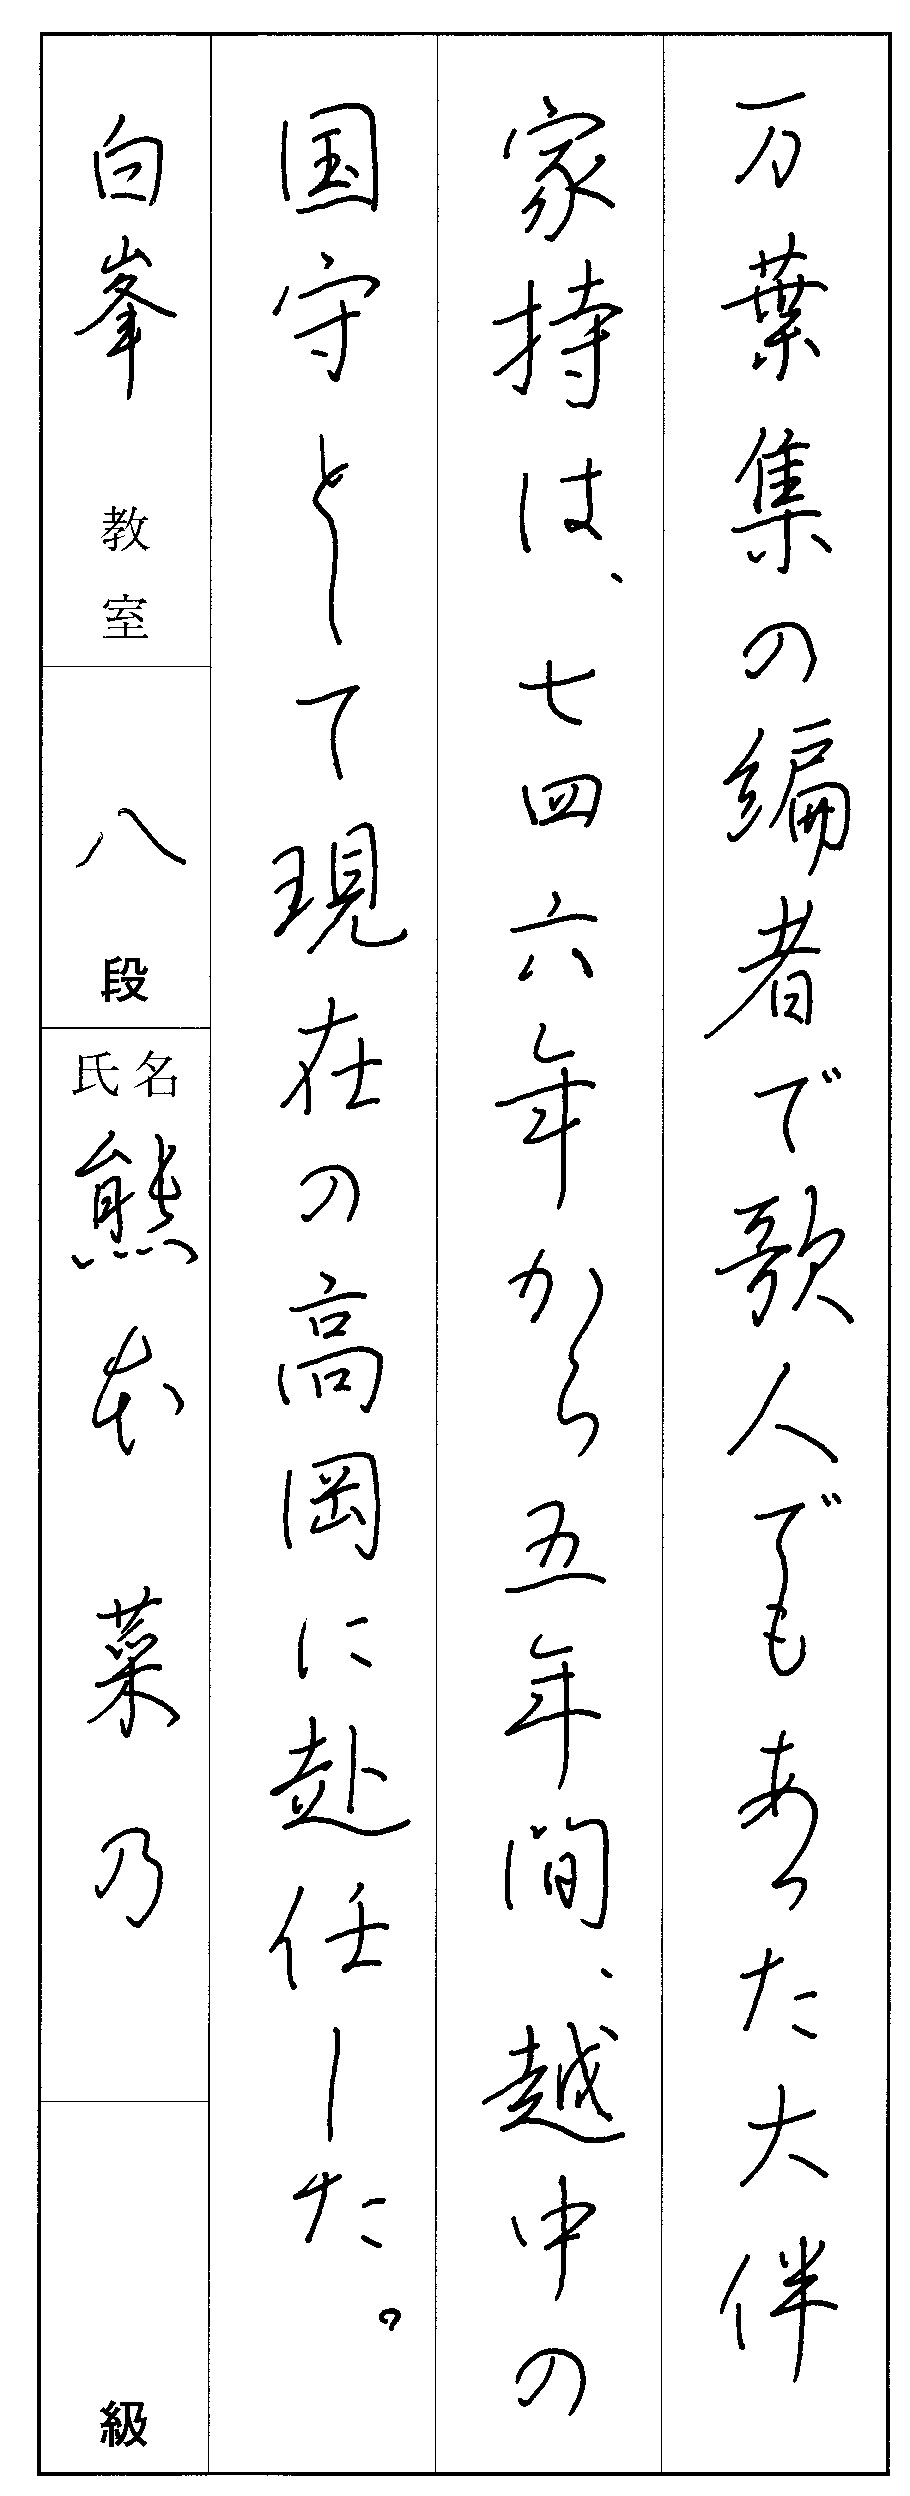 万葉集の編者で歌人でもあった大伴
家持は、七四六年から五年間、越中の
国守として現在の高岡に赴任した。
白峯 教室
八 段
氏名
熊本 菜乃
級